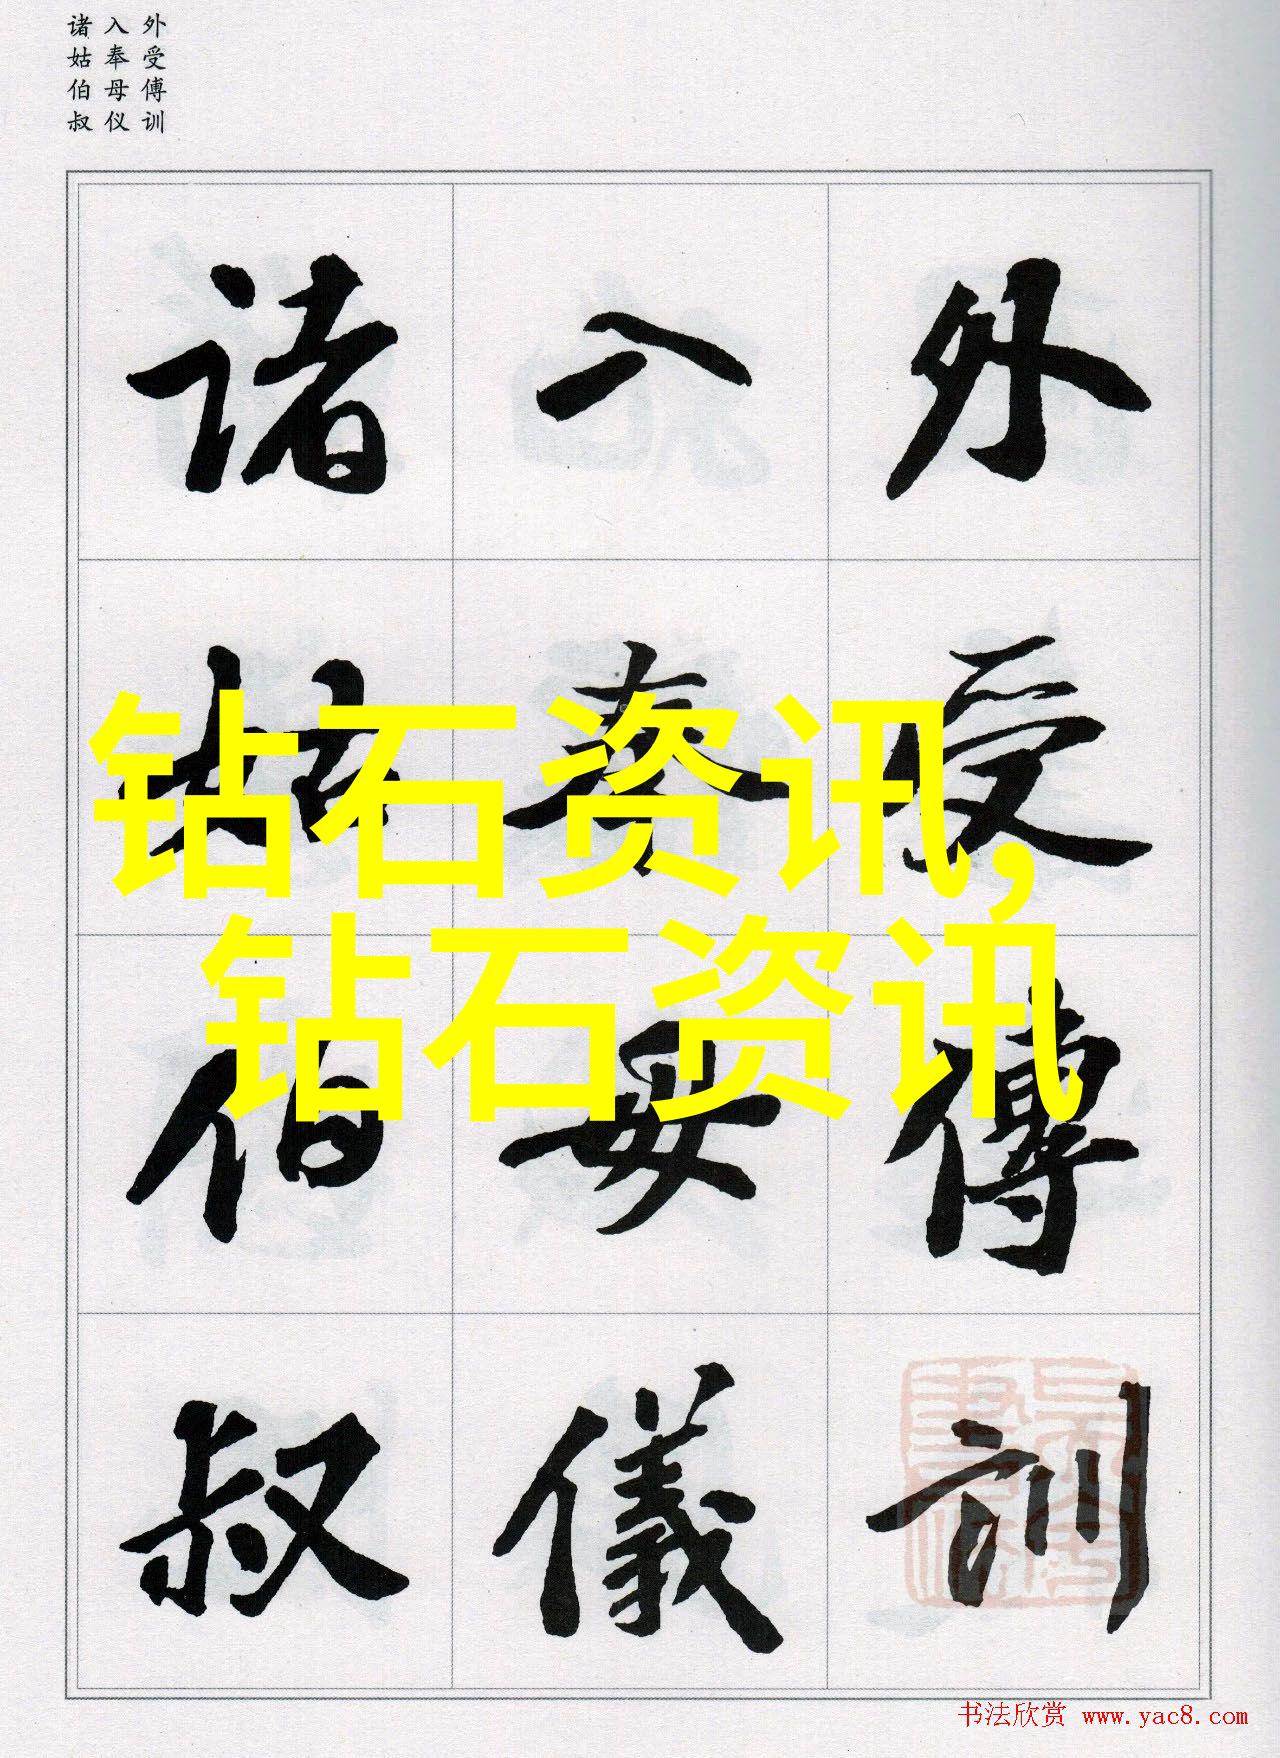 外受傅训
入奉母仪
诸姑伯叔
外受傅訓
入奉母儀
诸姑伯叔
钻石资讯,
钻石资讯
书法欣赏 www.yac8.com